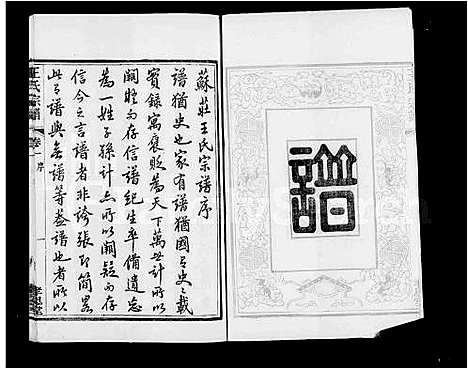 譜
蘇莊王氏宗譜序
譜猶史也家有譜猶國有史之載
實錄寓褒貶為天下萬世計所以
闕疑而存信譜紀生卒備遺忘
為一姓子孫計亦所以闕疑而存
信今之言譜者非誇張即簡畧
此有譜與無譜等盖譜也者所以
王氏宗譜 卷一 序